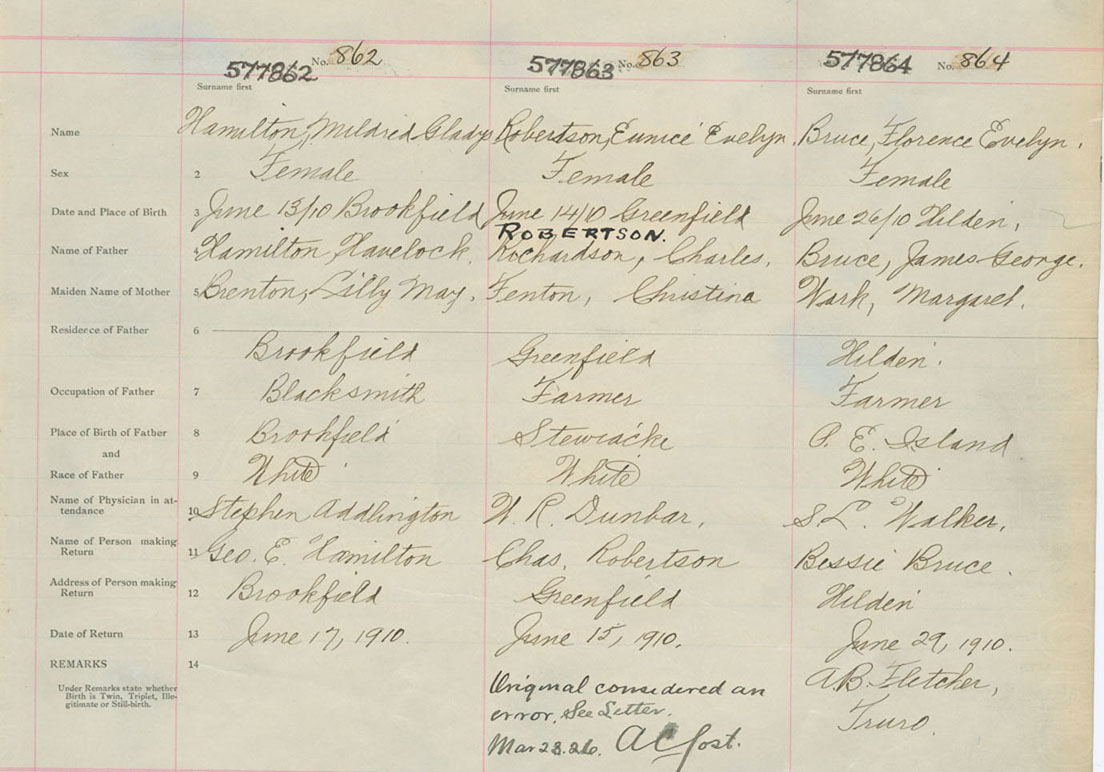 577862 No. 862 577863 No. 863 577864 No. 864
Surname first Surname first Surname first
Name Hamilton, Mildred Gladys Robertson, Eunice Evelyn. Bruce, Florence Evelyn.
Sex 2 Female Female Female
Date and Place of Birth 3 June 13/10 Brookfield June 14/10 Greenfield June 26/10 Hilden,
ROBERTSON.
Name of Father 4 Hamilton, Havelock. Richardson, Charles. Bruce, James George.
Maiden Name of Mother 5 Brenton, Lilly May. Fenton, Christina Wark, Margaret.
Residence of Father 6
Brookfield Greenfield Hilden.
Occupation of Father 7 Blacksmith Farmer Farmer
Place of Birth of Father 8 Brookfield Stewiacke P. E. Island
and
Race of Father 9 White White White
Name of Physician in at-
tendance 10 Stephen Addlington W. R. Dunbar, S. L. Walker.
Name of Person making
Return 11 Geo. E. Hamilton Chas. Robertson Bessie Bruce.
Address of Person making
Return 12 Brookfield Greenfield Hilden
Date of Return 13 June 17, 1910. June 15, 1910. June 29, 1910.
REMARKS 14
Under Remarks state whether
Birth is Twin, Triplet, Ille-
gitimate or Still-birth.
Original considered an
error, See Letter.
Mar 23.26.
A.B. Fletcher,
Truro.